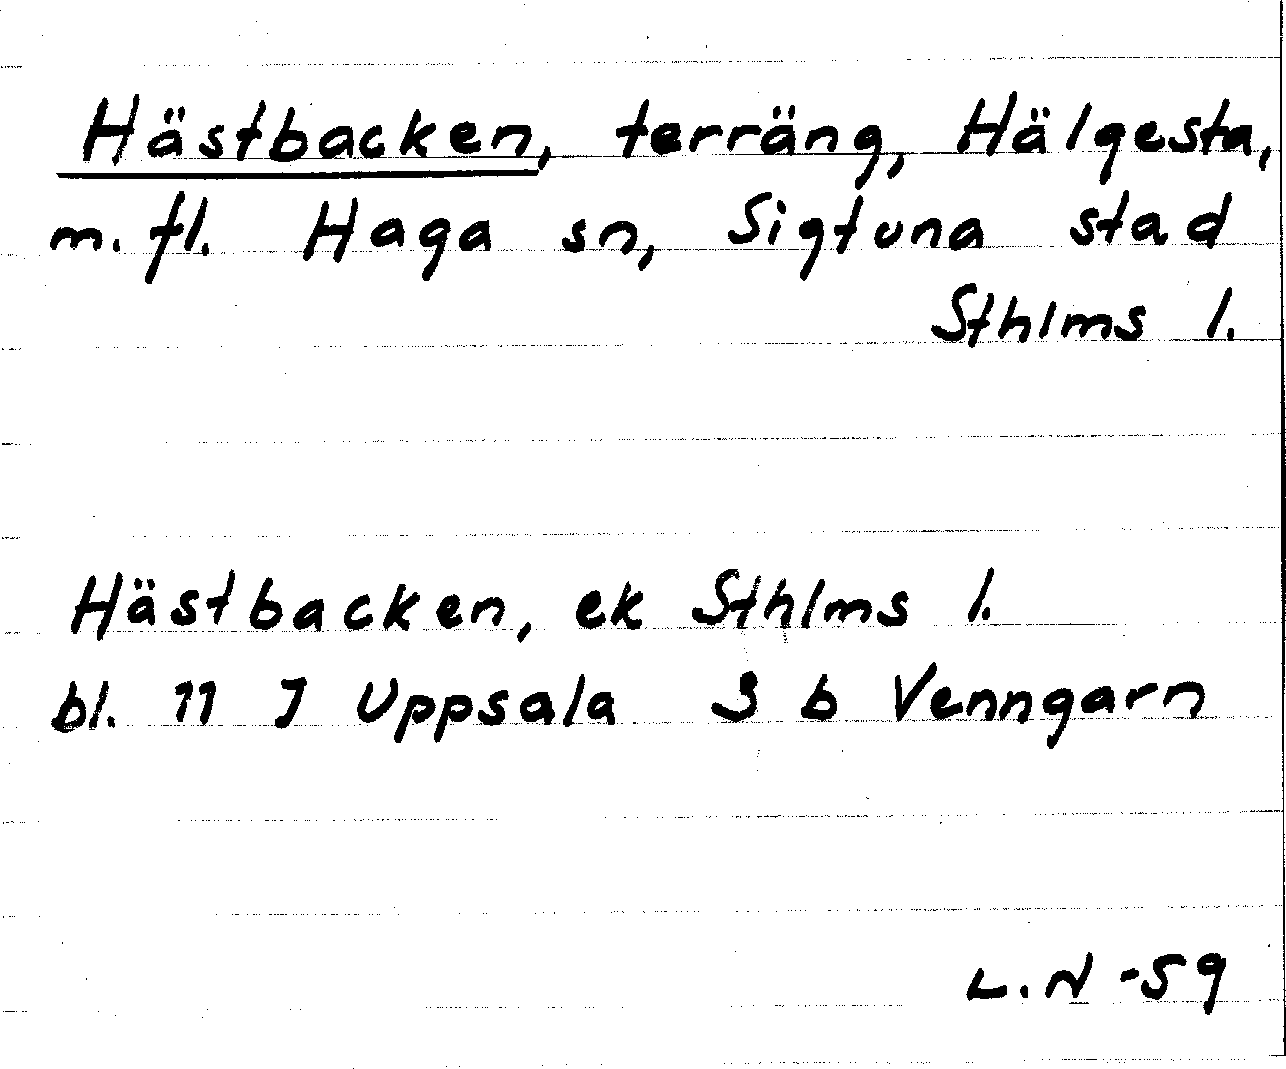 Hästbacken, terräng, Hälgesta,
m. fl. Haga sn, Sigtuna stad
Sthlms l.
Hästbacken, ek Sthlms l.
bl. 11 J Uppsala 3 b Venngarn
L.N -59